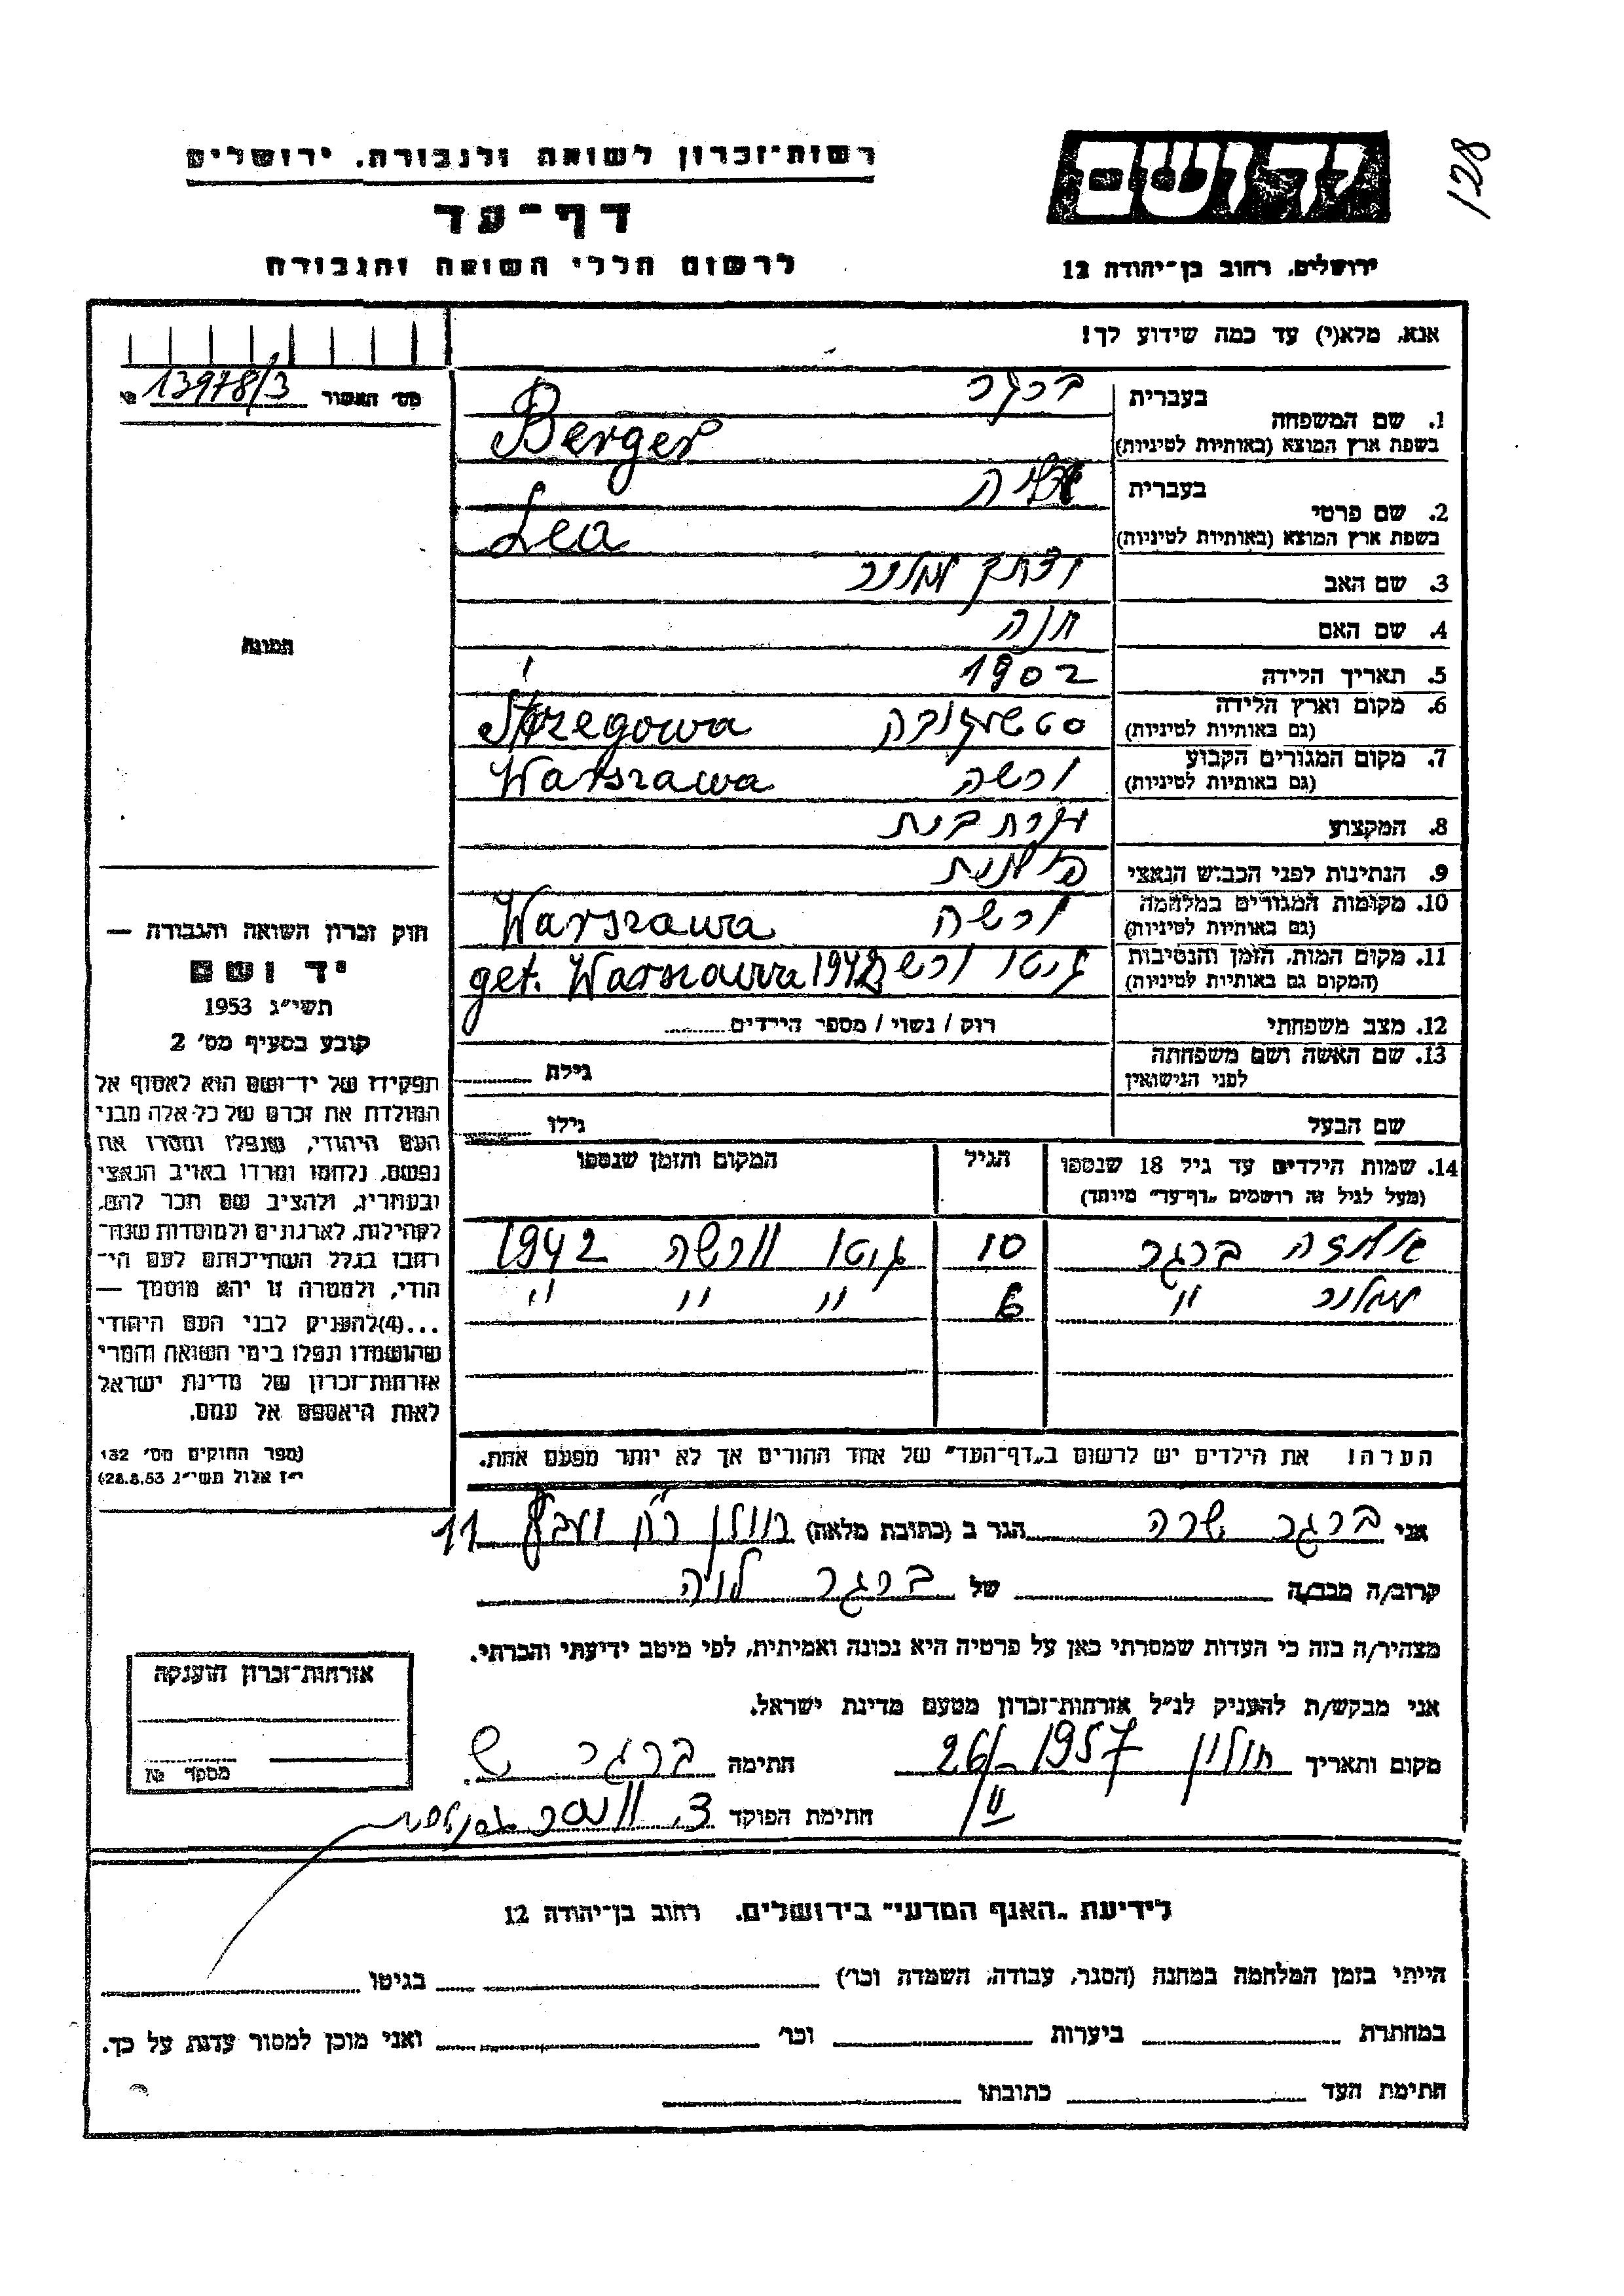 128
רשות־זכרון לשואה ולגבורה, ירושלים
יד ושם
דף־עד
לרשום חללי השואה והגבורה
ירושלים, רחוב בן־יהודה 12
אנא, מלא(י) עד כמה שידוע לך!
מס׳ האשור № 13978/3
1. שם המשפחה בעברית ברגר
בשפת ארץ המוצא (באותיות לטיניות) Berger
2. שם פרטי בעברית
בשפת ארץ המוצא (באותיות לטיניות) Lea
3. שם האב
4. שם האם חנה
5. תאריך הלידה 1902
6. מקום וארץ הלידה
(גם באותיות לטיניות) Strzegowa
7. מקום המגורים הקבוע ורשה
(גם באותיות לטיניות) Warszawa
8. המקצוע עקרת בית
9. הנתינות לפני הכבוש הנאצי פולנית
10. מקומות המגורים במלחמה ורשה
(גם באותיות לטיניות) Warszawa
11. מקום המות, הזמן והנסיבות גיטו ורשה
(המקום גם באותיות לטיניות) get. Warszawa 1942
12. מצב משפחתי רוק / נשוי / מספר הילדים
13. שם האשה ושם משפחתה
לפני הנישואין גילה
שם הבעל גילו
תמונה
חוק זכרון השואה והגבורה —
יד ושם
תשי״ג 1953
קובע בסעיף מס׳ 2
תפקידו של יד־ושם הוא לאסוף אל
המולדת את זכרם של כל אלה מבני
העם היהודי, שנפלו ומסרו את
נפשם, נלחמו ומרדו באויב הנאצי
ובעוזריו, ולהציב שם וזכר להם,
לקהילות, לארגונים ולמוסדות שנח־
רבו בגלל השתייכותם לעם הי־
הודי, ולמטרה זו יהא מוסמך —
...(4) להעניק לבני העם היהודי
שהושמדו ונפלו בימי השואה והמרי
אזרחות־זכרון של מדינת ישראל
לאות היאספם אל עמם.
(ספר החוקים מס׳ 132
י״ז אלול תשי״ג 28.8.53)
14. שמות הילדים עד גיל 18 שנספו הגיל המקום והזמן שנספו
(מעל לגיל זה רושמים „דף־עד״ מיוחד)
ברגר 10 גיטו וורשה 1942
" 6 " " " "
הערה! את הילדים יש לרשום ב„דף־העד״ של אחד ההורים אך לא יותר מפעם אחת.
אני ברגר שרה הגר ב (כתובת מלאה) חולון 11
קרוב/ה מכר/ה של ברגר לאה
מצהיר/ה בזה כי העדות שמסרתי כאן על פרטיה היא נכונה ואמיתית, לפי מיטב ידיעתי והכרתי.
אני מבקש/ת להעניק לנ״ל אזרחות־זכרון מטעם מדינת ישראל.
מקום ותאריך חולון 26/VI 1957 חתימה ברגר ש
חתימת הפוקד
אזרחות־זכרון הוענקה
מספר №
לידיעת „האגף המדעי״ בירושלים, רחוב בן־יהודה 12
הייתי בזמן המלחמה במחנה (הסגר, עבודה, השמדה וכו׳) בגיטו
במחתרת ביערות וכו׳ ואני מוכן למסור עדות על כך.
חתימת העד כתובתו